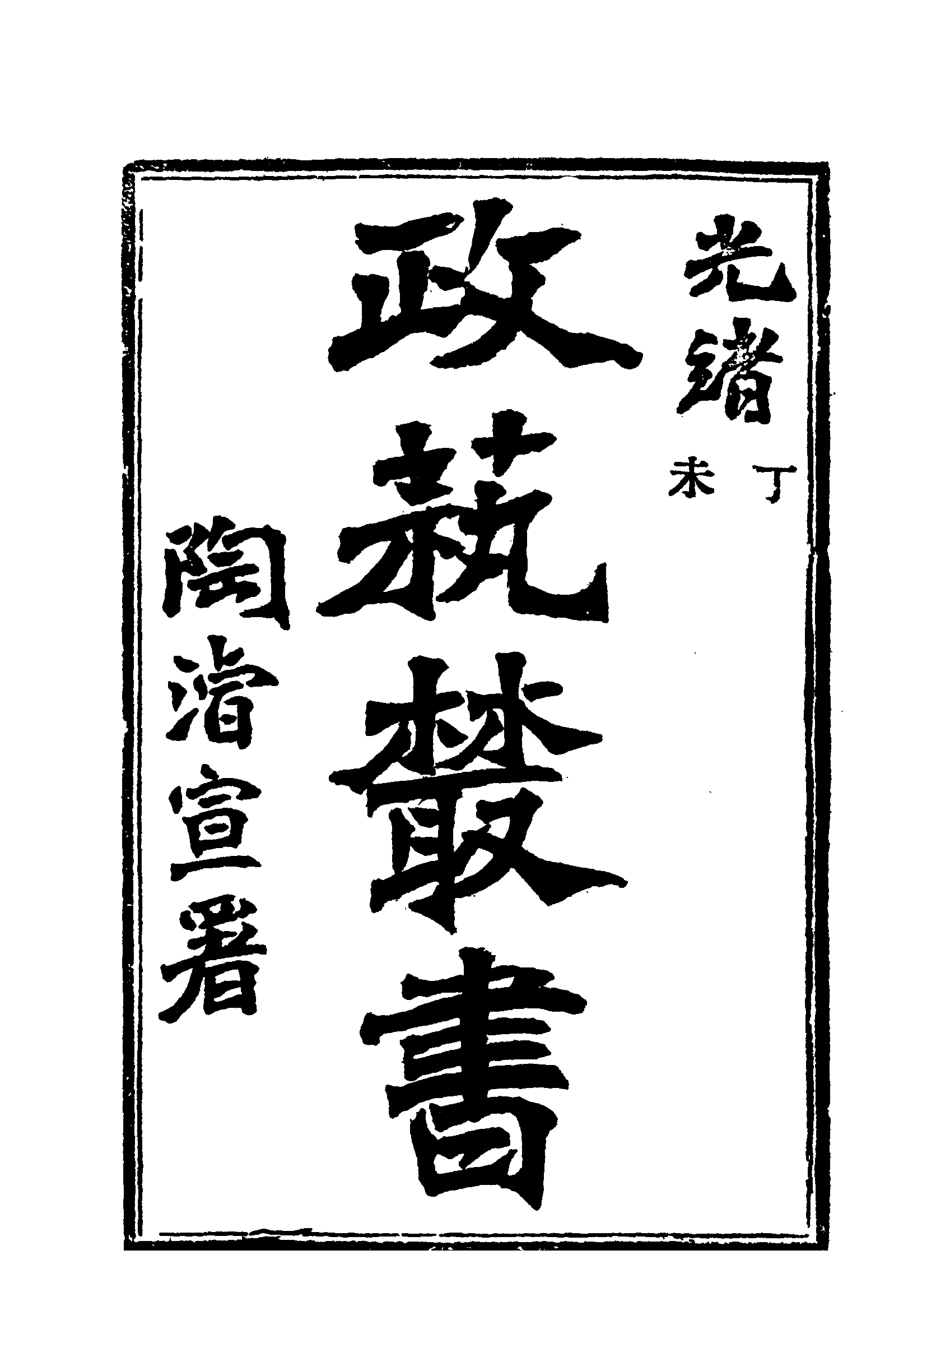 光緒丁未
政埶叢書
陶濬宣署